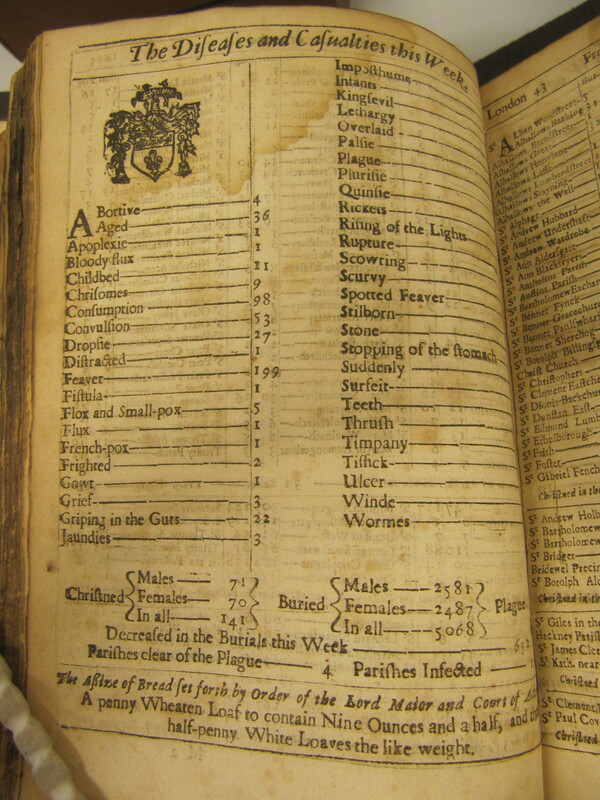 The Diſeaſes and Caſualties this Week.
Abortive 4
Aged 36
Apoplexie 1
Bloody flux 1
Childbed 21
Chriſomes 9
Conſumption 98
Convulſion 53
Dropſie 27
Diſtracted 1
Feaver 199
Fiſtula 1
Flox and Small-pox 5
Flux 1
French-pox 1
Frighted 2
Gowt 1
Grief 3
Griping in the Guts 22
Jaundies 3
Impoſthume
Infants
Kingſevil
Lethargy
Overlaid
Palſie
Plague
Pluriſie
Quinſie
Rickets
Riſing of the Lights
Rupture
Scowring
Scurvy
Spotted Feaver
Stilborn
Stone
Stopping of the ſtomach
Suddenly
Surfeit
Teeth
Thruſh
Timpany
Tiſſick
Ulcer
Winde
Wormes
Chriſtned
Males 71
Females 70
In all 141
Buried
Males 2581
Females 2487
In all 5068
Plague
Decreaſed in the Burials this Week
Pariſhes clear of the Plague 4 Pariſhes Infected
The Aſſize of Bread ſet forth by Order of the Lord Maior and Court of
A penny Wheaten Loaf to contain Nine Ounces and a half, and
half-penny White Loaves the like weight.
London 43
St Alban Woodſtreet
Alhallows Barking
Alhallows Breadſtreet
Alhallows the Wall
St Alphage
St Andrew Hubbard
St Andrew Underſhaft
St Andrew Wardrobe
St Ann Alderſgate
St Ann Blackfryers
St Bennet Fynck
Chriſt Church
St Chriſtophers
St Clement Eaſtche
St Dionis Backchur
St Dunſtan Eaſt
St Edmund Lumb
St Ethelborough
St Faith
St Foſter
St Gabriel Fench
Chriſtned in the
St Andrew Holb
St Bartholomew
St Bartholome
St Bridget
Bridewel Precin
St Botolph Al
Chriſtned in th
St Giles in the
Hackney Pariſh
St James Cler
St Kath. near
Chriſtned
St Clement
St Paul Cov
Chriſtned